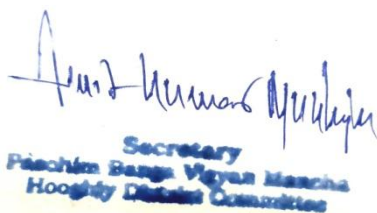 Kumar
Secretary
Paschim Banga Vigyan Mancha
Hooghly District Committee